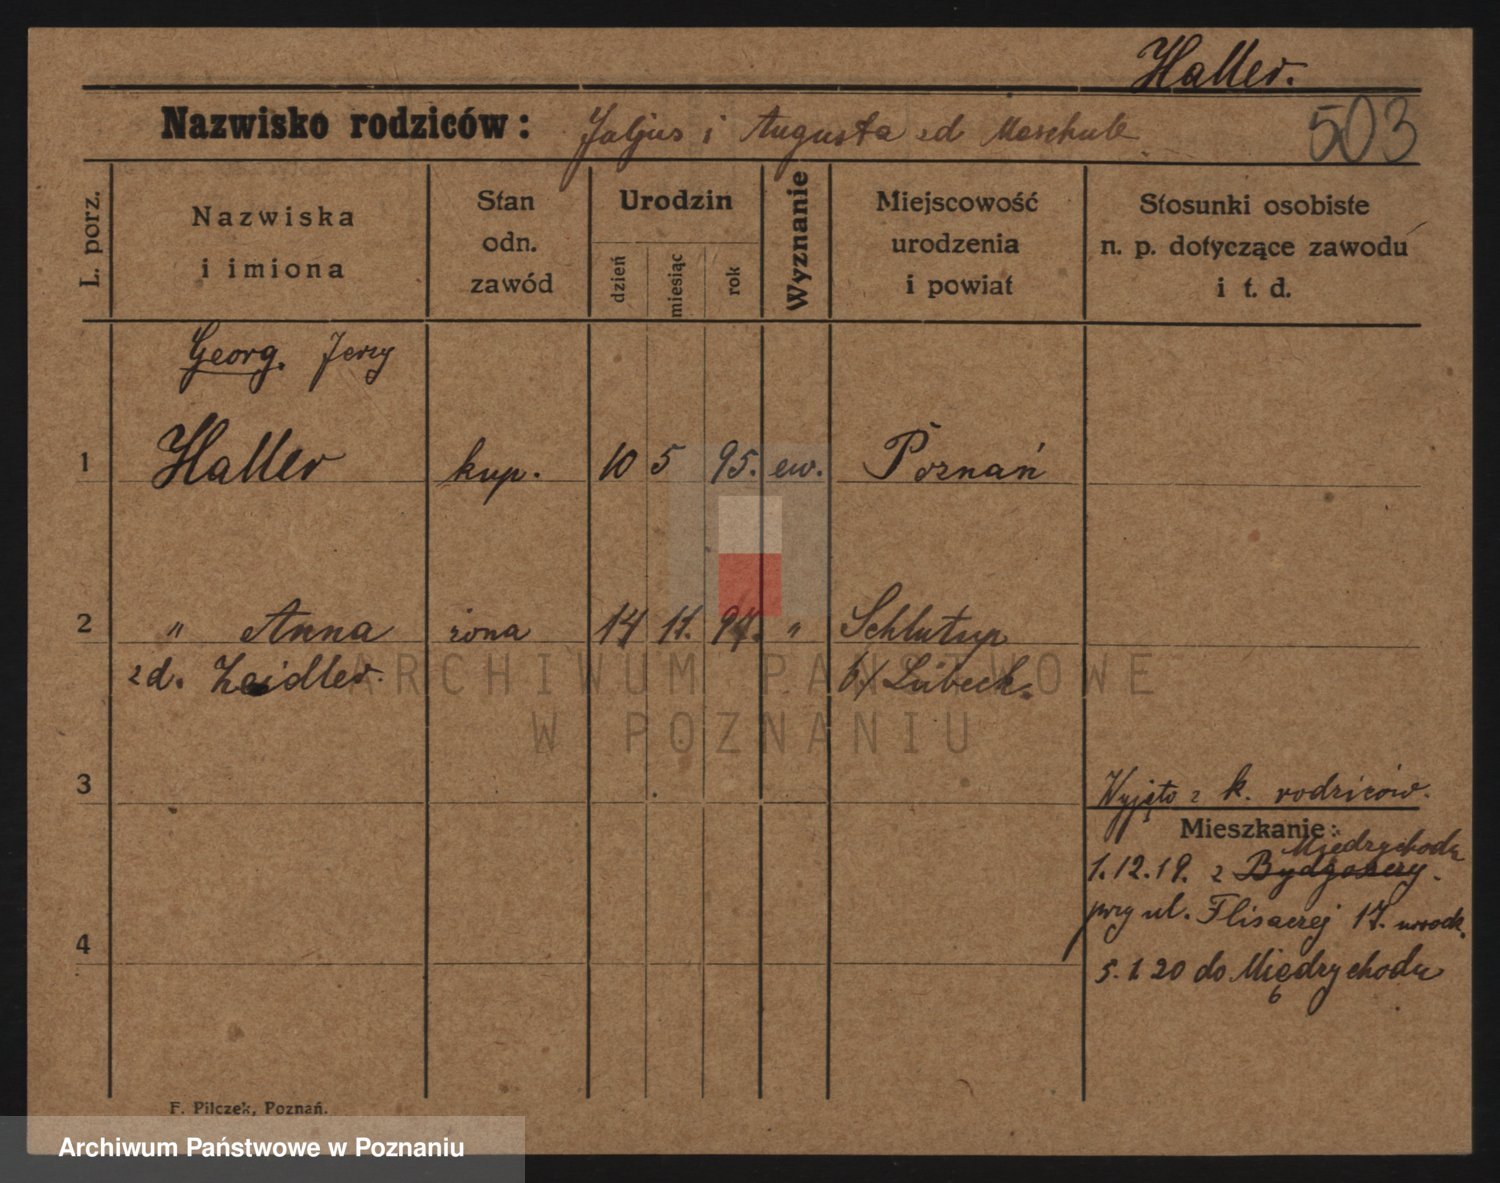 Haller.
503
Nazwisko rodziców: Juljus i Augusta zd Maschule
L. porz.
Nazwiska
i imiona
Stan
odn.
zawód
Urodzin
dzień
miesiąc
rok
Wyznanie
Miejscowość
urodzenia
i powiat
Stosunki osobiste
n. p. dotyczące zawodu
i t. d.
Georg. Jerzy
1 Haller kup. 10 5 95. ew. Poznań
2 " Anna żona 14 11. 97. " Schlutup
zd. Zeidler. b/ Lübeck.
3
Wyjęto z k. rodziców.
Mieszkanie:
Międzychodu
1.12.19. z Bydgoszczy.
przy ul. Flisaczej 17.
4
5.1.20 do Międzychodu
F. Pilczek, Poznań.
ARCHIWUM PAŃSTWOWE
W POZNANIU
Archiwum Państwowe w Poznaniu